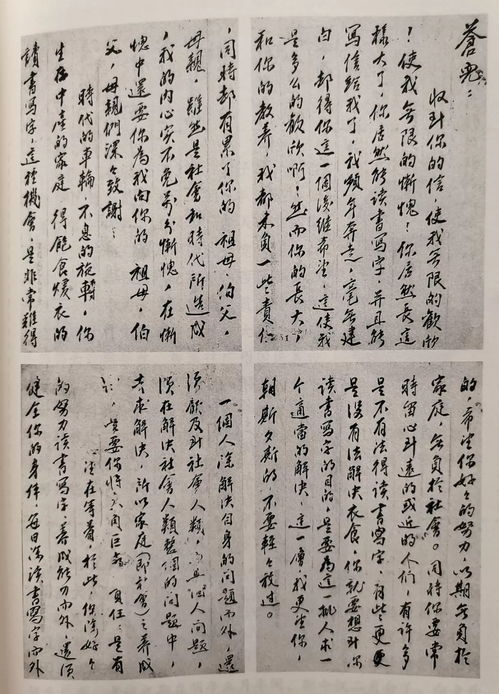 蒼兒：
收到你的信，使我無限的歡欣
！使我無限的慚愧！你居然長這
樣大了，你居然能讀書寫字，并且能
寫信給我了，我頻年奔走，毫無建
白，却得你這一個後繼希望，這使我
是多么的歡欣啊！然而你的長大，
和你的教养，我都未負一些責任
，同時却有累了你的祖母，伯父，
母親，雖然是社會和時代所造成
，我的内心实不免萬分慚愧，在慚
愧中還要你為我向你的祖母，伯
父，母親們深々致謝！
時代的車輪不息的旋轉，你
生存中產的家庭得飽食煖衣的
讀書寫字，這種機會，是非常難得
的，希望你好々的努力以期無負於
家庭，無負於社會。同時你要常
時留心到遠的或近的人们，有許多
是不有法得讀書寫字，有些更
是没有法解决衣食，你就要想到你
讀書寫字的目的，是要為這一批人求一
个適當的解决，這一層我更望你，
朝斯夕斯的不要輕々放过。
一個人除解决自身的問題而外，還
須顧及到社會人類，而且個人問題，
須在解决社會人類整個的問題中，
去求解决，所以家庭（即社會）之养成
是要你將來肩
在等着 於此，你除好々
的努力讀書寫字，养成能力而外，還須
健全你的身体，每日除讀書寫字而外